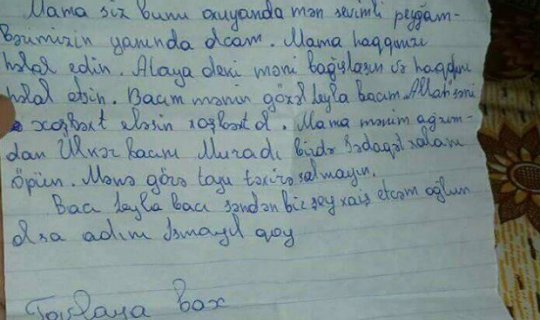 Mama siz bunu oxuyanda mən sevimli peyğəm-
bərimizin yanında olcam. Mama haqqınızı
halal edin. Ataya deki məni bağışlasın və haqqını
halal etsin. Bacım mənim gözəl Leyla bacım. Allah səni
xoşbəxt eləsin xoşbəxt ol. Mama mənim ağzım-
dan Ülkər bacını Muradı birdə Sədaqət xalanı
öpün. Mənə görə toyu təxirə salmayın.
Bacı Leyla bacı səndən bir şey xaiş etcəm oğlun
olsa adını İsmayıl qoy
Tovlaya bax